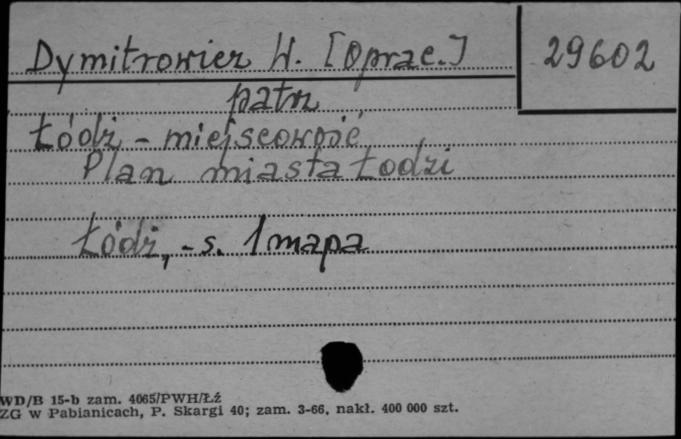 Dymitrowicz W. [oprac.]
29602
patrz
Łódź - miejscowość
Plan miasta Łodzi
Łódź, - s. 1 mapa
WD/B 15-b zam. 4065/PWH/Łź
ZG w Pabianicach, P. Skargi 40; zam. 3-66. nakł. 400 000 szt.